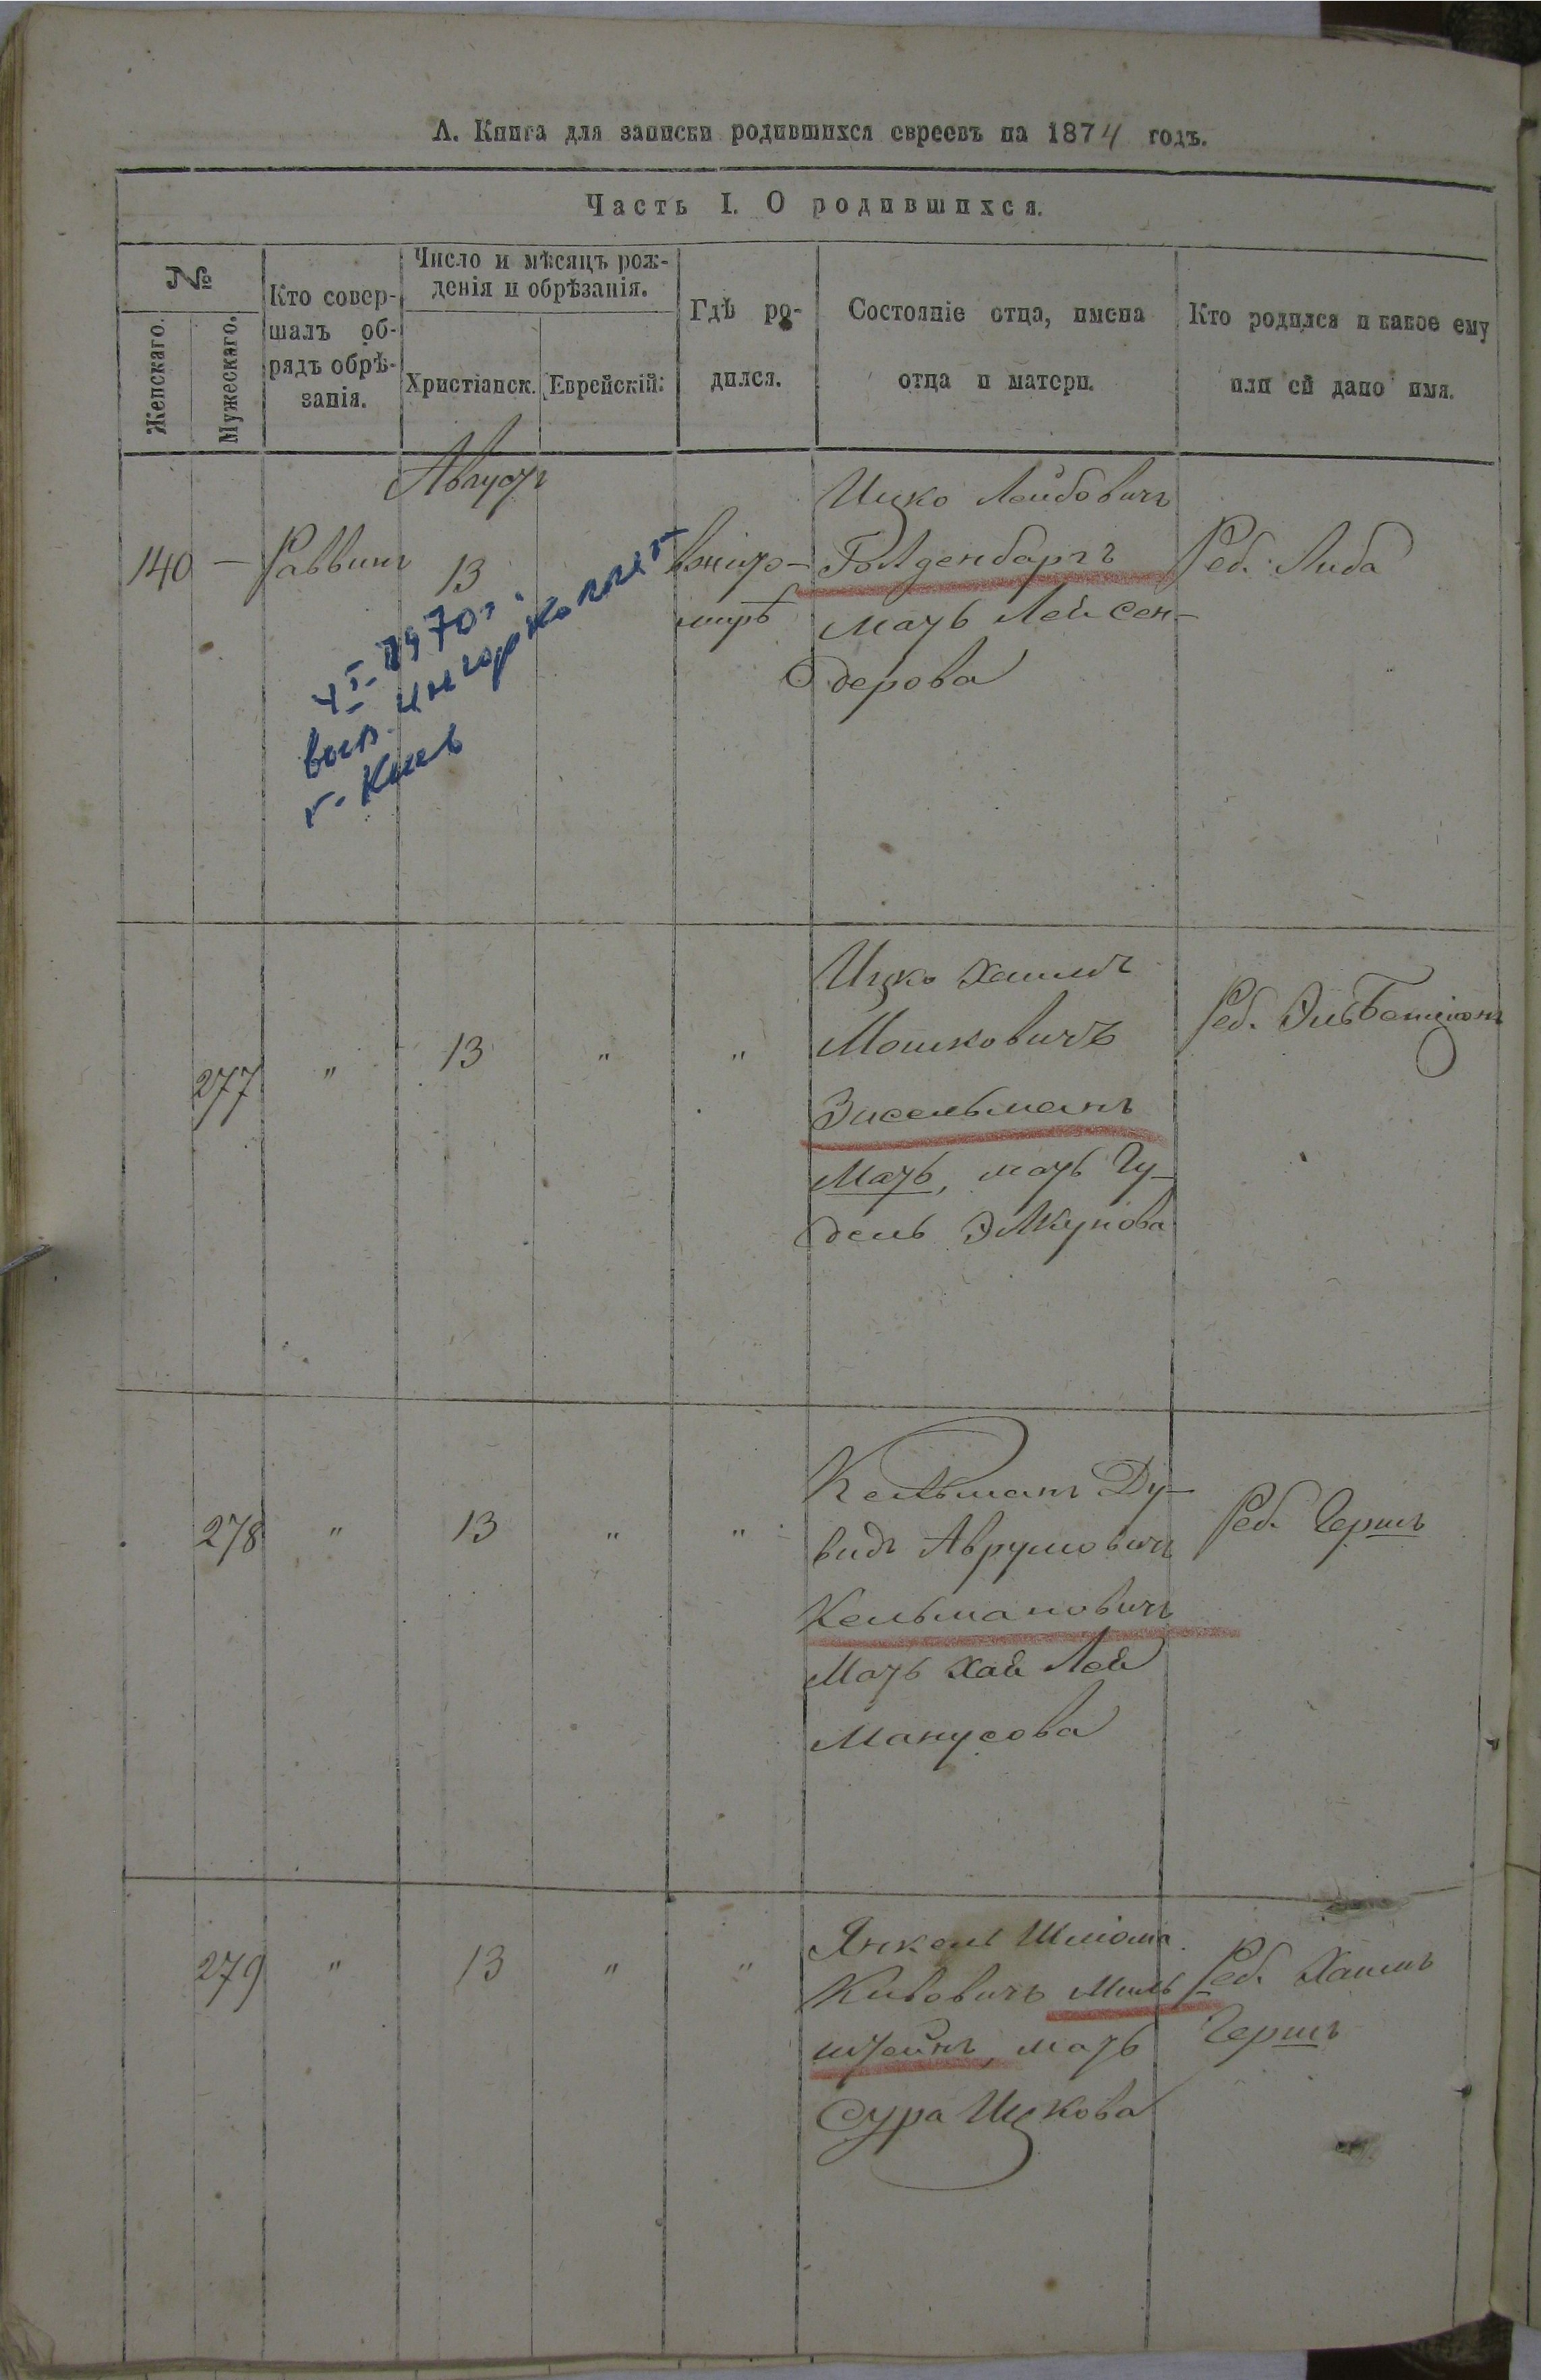 А. Книга для записки родившихся евреевъ на 1874 годъ.
Часть I. О родившихся.
№
Женскаго.
Мужескаго.
Кто совер-
шалъ об-
рядъ обрѣ-
занія.
Число и мѣсяцъ рож-
денія и обрѣзанія.
Христіанск.
Еврейскій:
Гдѣ ро-
дился.
Состояніе отца, имена
отца и матери.
Кто родился и какое ему
или ей дано имя.
Август
140 — Раввинъ 13
вжито-
мирѣ
Ицко Лейбовичъ
Голденбаргъ
мать Лея Сен-
дерова
Реб. Либа
г. Киев
277 " 13 " "
Ицко Хаимъ
Мошковичъ
Зисельманъ
Мать, мать Гу-
дель Элкунова
Реб.
278 " 13 " "
Кельманъ Ду-
видъ Аврумовичъ
Кельмановичъ
Мать Хая Лея
Манусова
Реб. Гершъ
279 " 13 " "
Янкель Шліома
Кивовичъ Миль-
штейнъ, мать
Сура Ицкова
Реб. Хаимъ
Гершъ